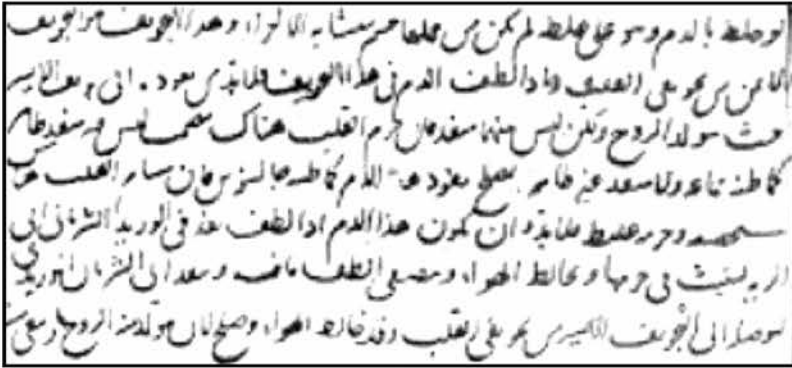 لو خلط بالدم وهو على غلظ لم يكن من جملتها جسم متشابه الاجزاء وهذا التجويف هو التجويف
الايمن من تجويفي القلب واذا لطف الدم في هذا التجويف فلا بد من نفوذه الى التجويف الايسر
حيث مولد الروح ولكن ليس بينهما منفذ فان جرم القلب هناك مصمت ليس فيه منفذ ظاهر
كما ظنه جماعة ولا منفذ غير ظاهر يصلح لنفوذ هذا الدم كما ظنه جالينوس فان مسام القلب هناك
مستحصفة وجرمه غليظ فلا بد وان يكون هذا الدم اذا لطف نفذ في الوريد الشرياني الى
الرية لينبث في جرمها ويخالط الهواء ويصفى الطف ما فيه وينفذ الى الشريان الوريدي
ليوصله الى التجويف الايسر من تجويفي القلب وقد خالط الهواء وصلح لان يتولد منه الروح وما بقي